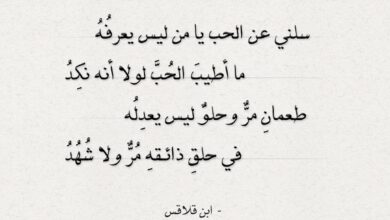 سلني عن الحب يا من ليس يعرفُهُ
ما أطيبَ الحُبَّ لولا أنه نكِدُ
طعمانِ مرٌّ وحلوٌ ليس يعدِلُه
في حلقِ ذائقهِ مُرٌّ ولا شُهُدُ
- ابن قلاقس